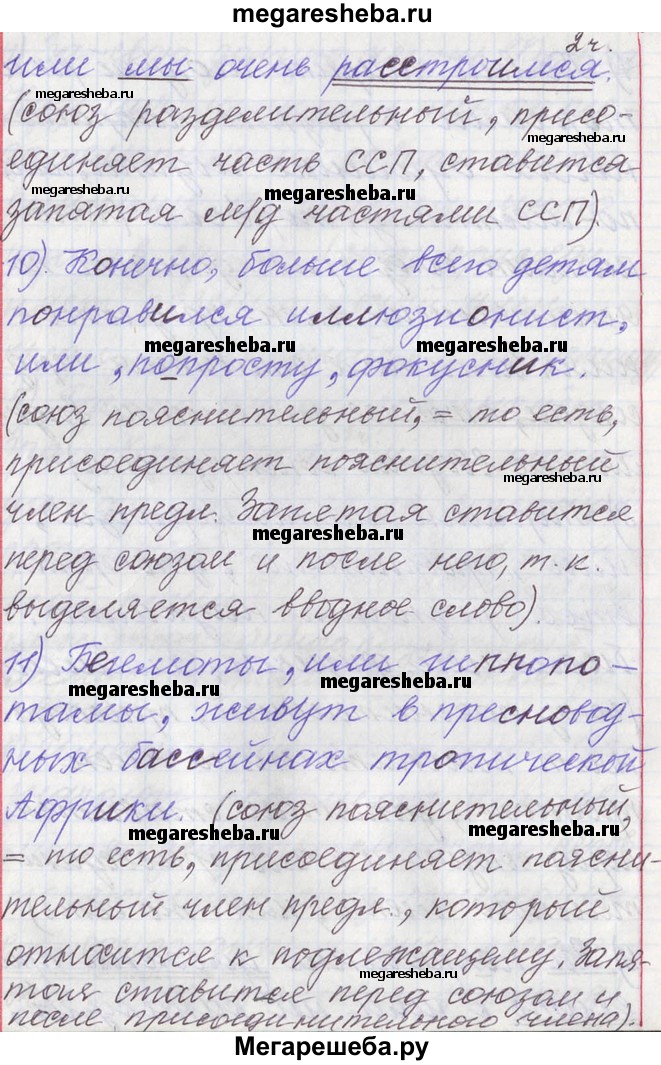 megaresheba.ru
2ч.
или мы очень расстроимся.
megaresheba.ru
(союз разделительный, присо-
megaresheba.ru
единяет часть ССП, ставится
megaresheba.ru megaresheba.ru
запятая м/д частями ССП).
10). Конечно, больше всего детям
понравился иллюзионист,
megaresheba.ru megaresheba.ru
или, попросту, фокусник.
(союз пояснительный, = то есть,
присоединяет пояснительный
megaresheba.ru
член предл. Запятая ставится
megaresheba.ru
перед союзом и после него, т.к.
выделяется вводное слово).
11) Бегемоты, или гиппопо-
megaresheba.ru megaresheba.ru
тамы, живут в пресновод-
ных бассейнах тропической
Африки. (союз пояснительный,
megaresheba.ru megaresheba.ru
= то есть, присоединяет поясни-
тельный член предл., который
относится к подлежащему. Запя-
megaresheba.ru
тая ставится перед союзом и
после присоединительного члена).
Мегарешеба.ру